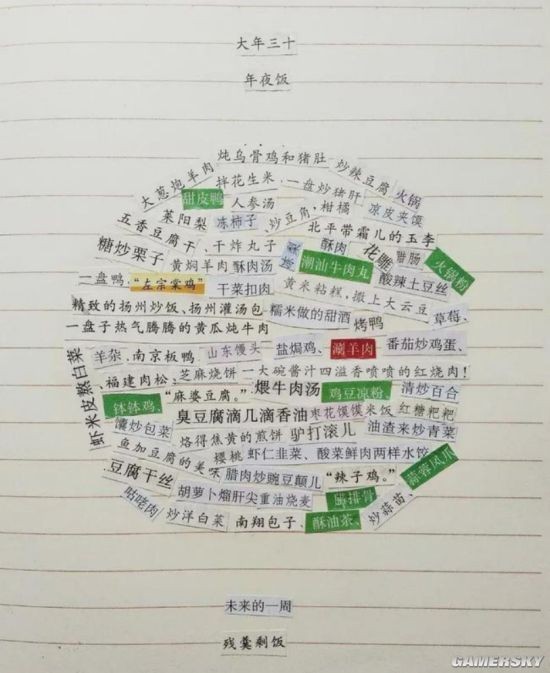 大年三十
年夜饭
炖乌骨鸡和猪肚
炒辣豆腐
火锅
大葱炮羊肉
拌花生米、
一盘炒猪肝
凉皮夹馍
甜皮鸭
人参汤
莱阳梨
冻柿子
炒豆角,
柑橘
北平带霜儿的玉李
五香豆腐干、
干炸丸子
酥肉
花雕
腊肠
火锅粉
糖炒栗子
黄焖羊肉
酥肉汤
潮汕牛肉丸
酸辣土豆丝
一盘鸭,
“左宗棠鸡”
干菜扣肉
黄米粘糕,
撒上大云豆
草莓、
精致的扬州炒饭、扬州灌汤包
糯米做的甜酒
烤鸭
一盘子热气腾腾的黄瓜炖牛肉
羊杂、
南京板鸭、
山东馒头
盐焗鸡、
涮羊肉
番茄炒鸡蛋、
虾米皮熬白菜
福建肉松;
芝麻烧饼
一大碗酱汁四溢香喷喷的红烧肉!
钵钵鸡、
“麻婆豆腐。”
煨牛肉汤
鸡豆凉粉、
清炒百合
臭豆腐滴几滴香油
枣花馍馍
米饭
红糖粑粑
炒包菜
烙得焦黄的煎饼
驴打滚儿
油渣来炒青菜
鱼加豆腐的美味
樱桃
虾仁韭菜、
酸菜鲜肉两样水饺
蒜蓉凤爪
豆腐干丝
腊肉炒豌豆颠儿
“辣子鸡。”
咕咾肉
胡萝卜熘肝尖
重油烧麦
排骨
炒洋白菜
南翔包子、
酥油茶、
炒蒜苗、
未来的一周
残羹剩饭
GAMERSKY